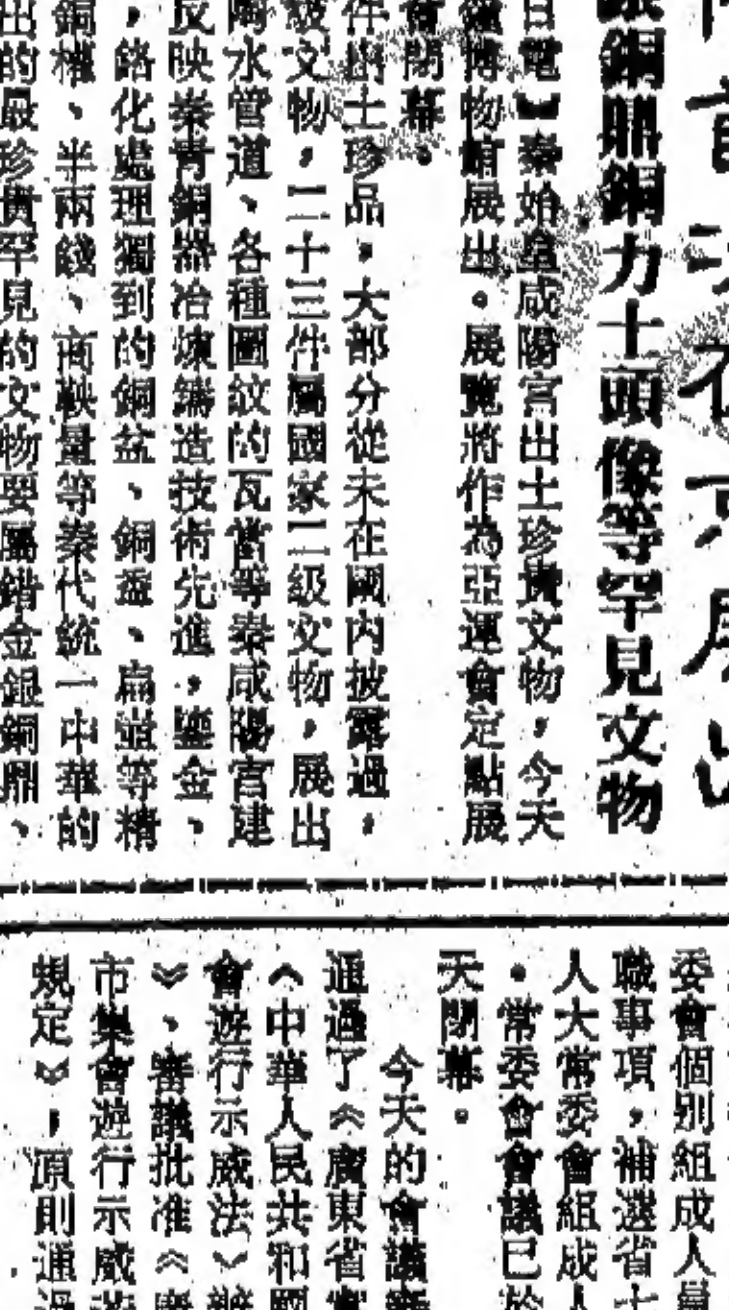 銅鼎銅力士頭像等罕見文物
日電】秦始皇咸陽宮出土珍貴文物，今天
博物館展出。展覽將作為亞運會定點展
會閉幕。
件出土珍品，大部分從未在國內披露過，
級文物，二十三件屬國家二級文物，展出
陶水管道、各種圖紋的瓦當等秦咸陽宮建
反映秦青銅器冶煉鑄造技術先進，鎏金、
，鉻化處理獨到的銅盆、銅盉、扁壺等精
銅權、半兩錢、商鞅量等秦代統一中華的
出的最珍貴罕見的文物要屬錯金銀銅鼎、
委會個別組成人員
職事項，補選省
人大常委會組成人
。常委會會議已於
天閉幕。
今天的會議
通過了《廣東省實
《中華人民共和國
會遊行示威法》辦
》、審議批准《廣
市集會遊行示威
規定》，原則通過